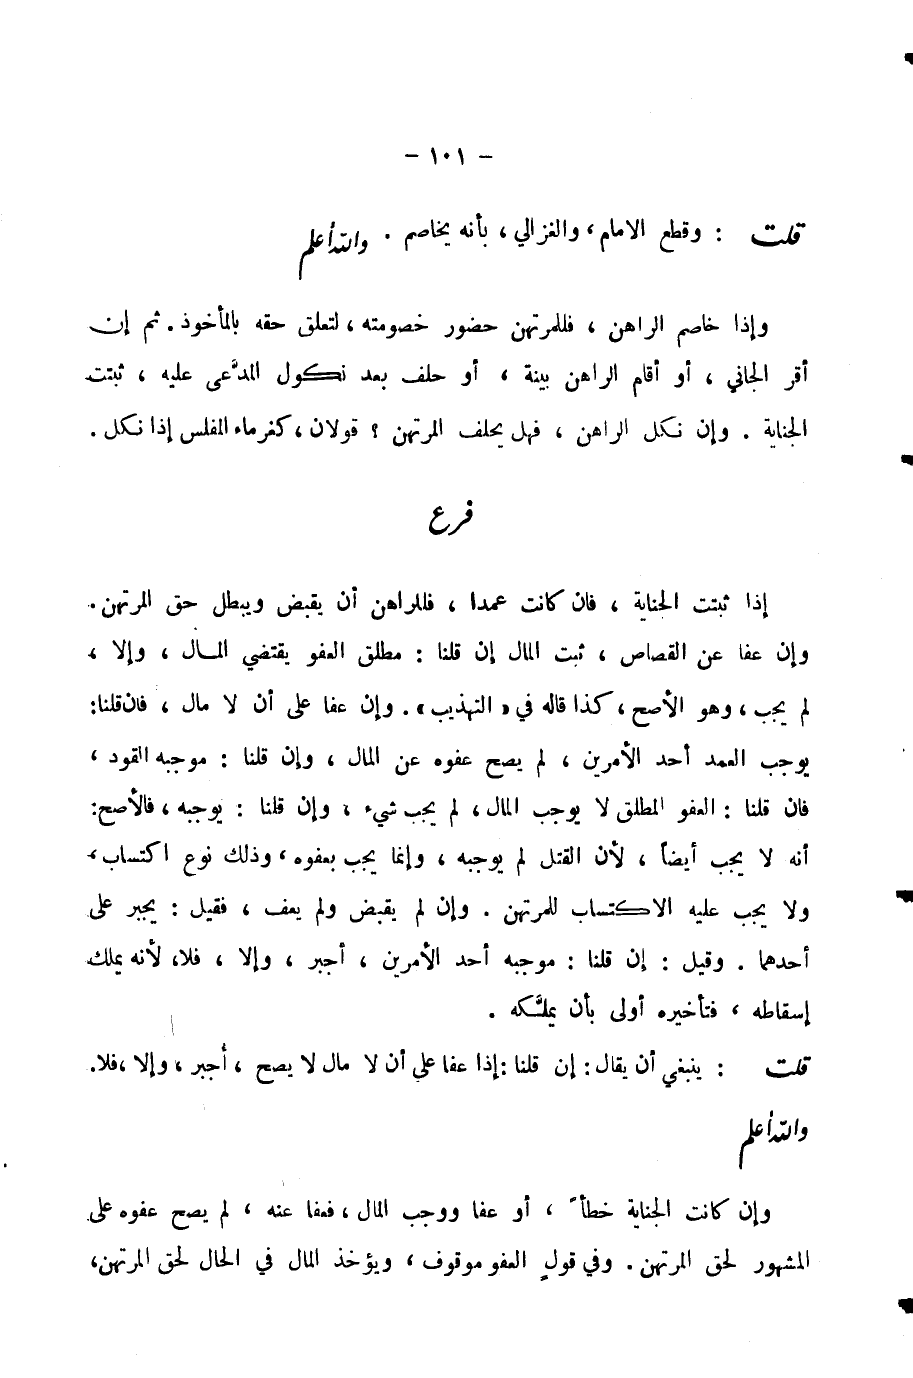 - ١٠١ -
قلت : وقطع الامام ، والغزالي ، بأنه يخاصم . والله أعلم
وإذا خاصم الراهن ، فللمرتهن حضور خصومته ، لتعلق حقه بالمأخوذ . ثم إن
أقر الجاني ، أو أقام الراهن بينة ، أو حلف بعد نكول المدَّعى عليه ، ثبتت
الجناية . وإن نكل الراهن ، فهل يحلف المرتهن ؟ قولان ، كغرماء المفلس إذا نكل .
فرع
إذا ثبتت الجناية ، فان كانت عمدا ، فللراهن أن يقبض ويبطل حق المرتهن .
وإن عفا عن القصاص ، ثبت المال إن قلنا : مطلق العفو يقتضي المـال ، وإلا ،
لم يجب ، وهو الأصح ، كذا قاله في « التهذيب » . وإن عفا على أن لا مال ، فان قلنا :
يوجب العمد أحد الأمرين ، لم يصح عفوه عن المال ، وإن قلنا : موجبه القود ،
فان قلنا : العفو المطلق لا يوجب المال ، لم يجب شيء ، وإن قلنا : يوجبه ، فالأصح :
أنه لا يجب أيضاً ، لأن القتل لم يوجبه ، وإنما يجب بعفوه ، وذلك نوع اكتساب ،
ولا يجب عليه الاكتساب للمرتهن . وإن لم يقبض ولم يعف ، فقيل : يجبر على
أحدهما . وقيل : إن قلنا : موجبه أحد الأمرين ، أجبر ، وإلا ، فلا ، لأنه يملك
إسقاطه ، فتأخيره أولى بأن يملَّكه .
قلت : ينبغي أن يقال : إن قلنا : إذا عفا على أن لا مال لا يصح ، أُجبر ، وإلا ، فلا .
والله أعلم
وإن كانت الجناية خطأً ، أو عفا ووجب المال ، فعفا عنه ، لم يصح عفوه على
المشهور لحق المرتهن . وفي قولٍ العفو موقوف ، ويؤخذ المال في الحال لحق المرتهن ،